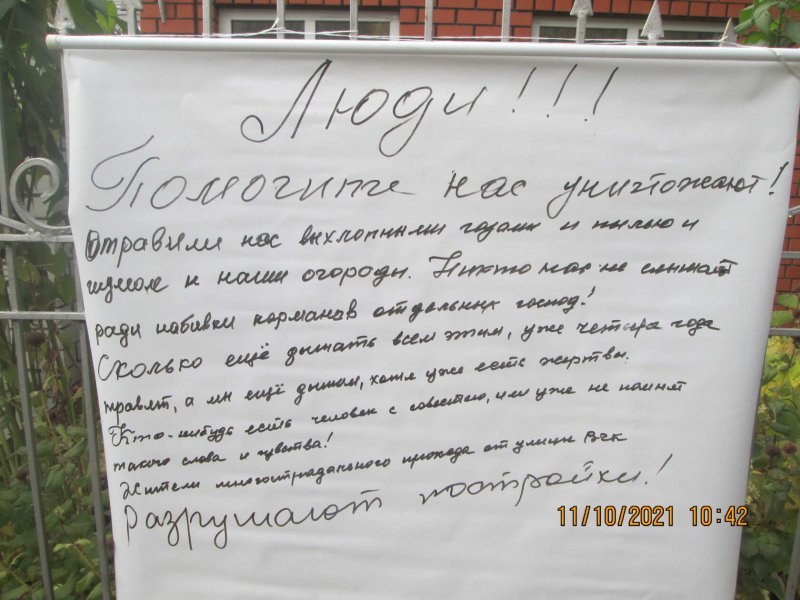 Люди!!!
Помогите нас уничтожают!
Отравили нас выхлопными газами и пылью и
шумом и наши огороды. Никто нас не слышит
ради набивки карманов отдельных господ!
Сколько ещё дышать всем этим, уже четыре года
травят, а мы ещё дышим, хотя уже есть жертвы.
Кто-нибудь есть человек с совестью, или уже не помнят
такого слова и чувства!
Жители многострадального проезда от улицы
Разрушают постройки!
11/10/2021 10:42